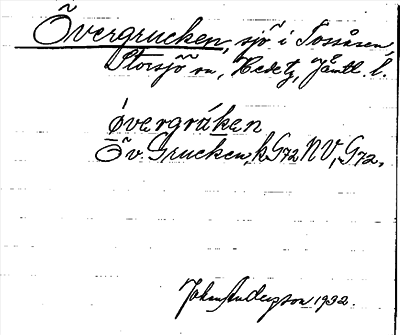 Övergrucken, sjö i Tossåsen,
Storsjö sn, Hede tg, Jämtl. l.
óvergráken
Öv. Grucken, k G72 NV, G72.
John Anderzson 1932.